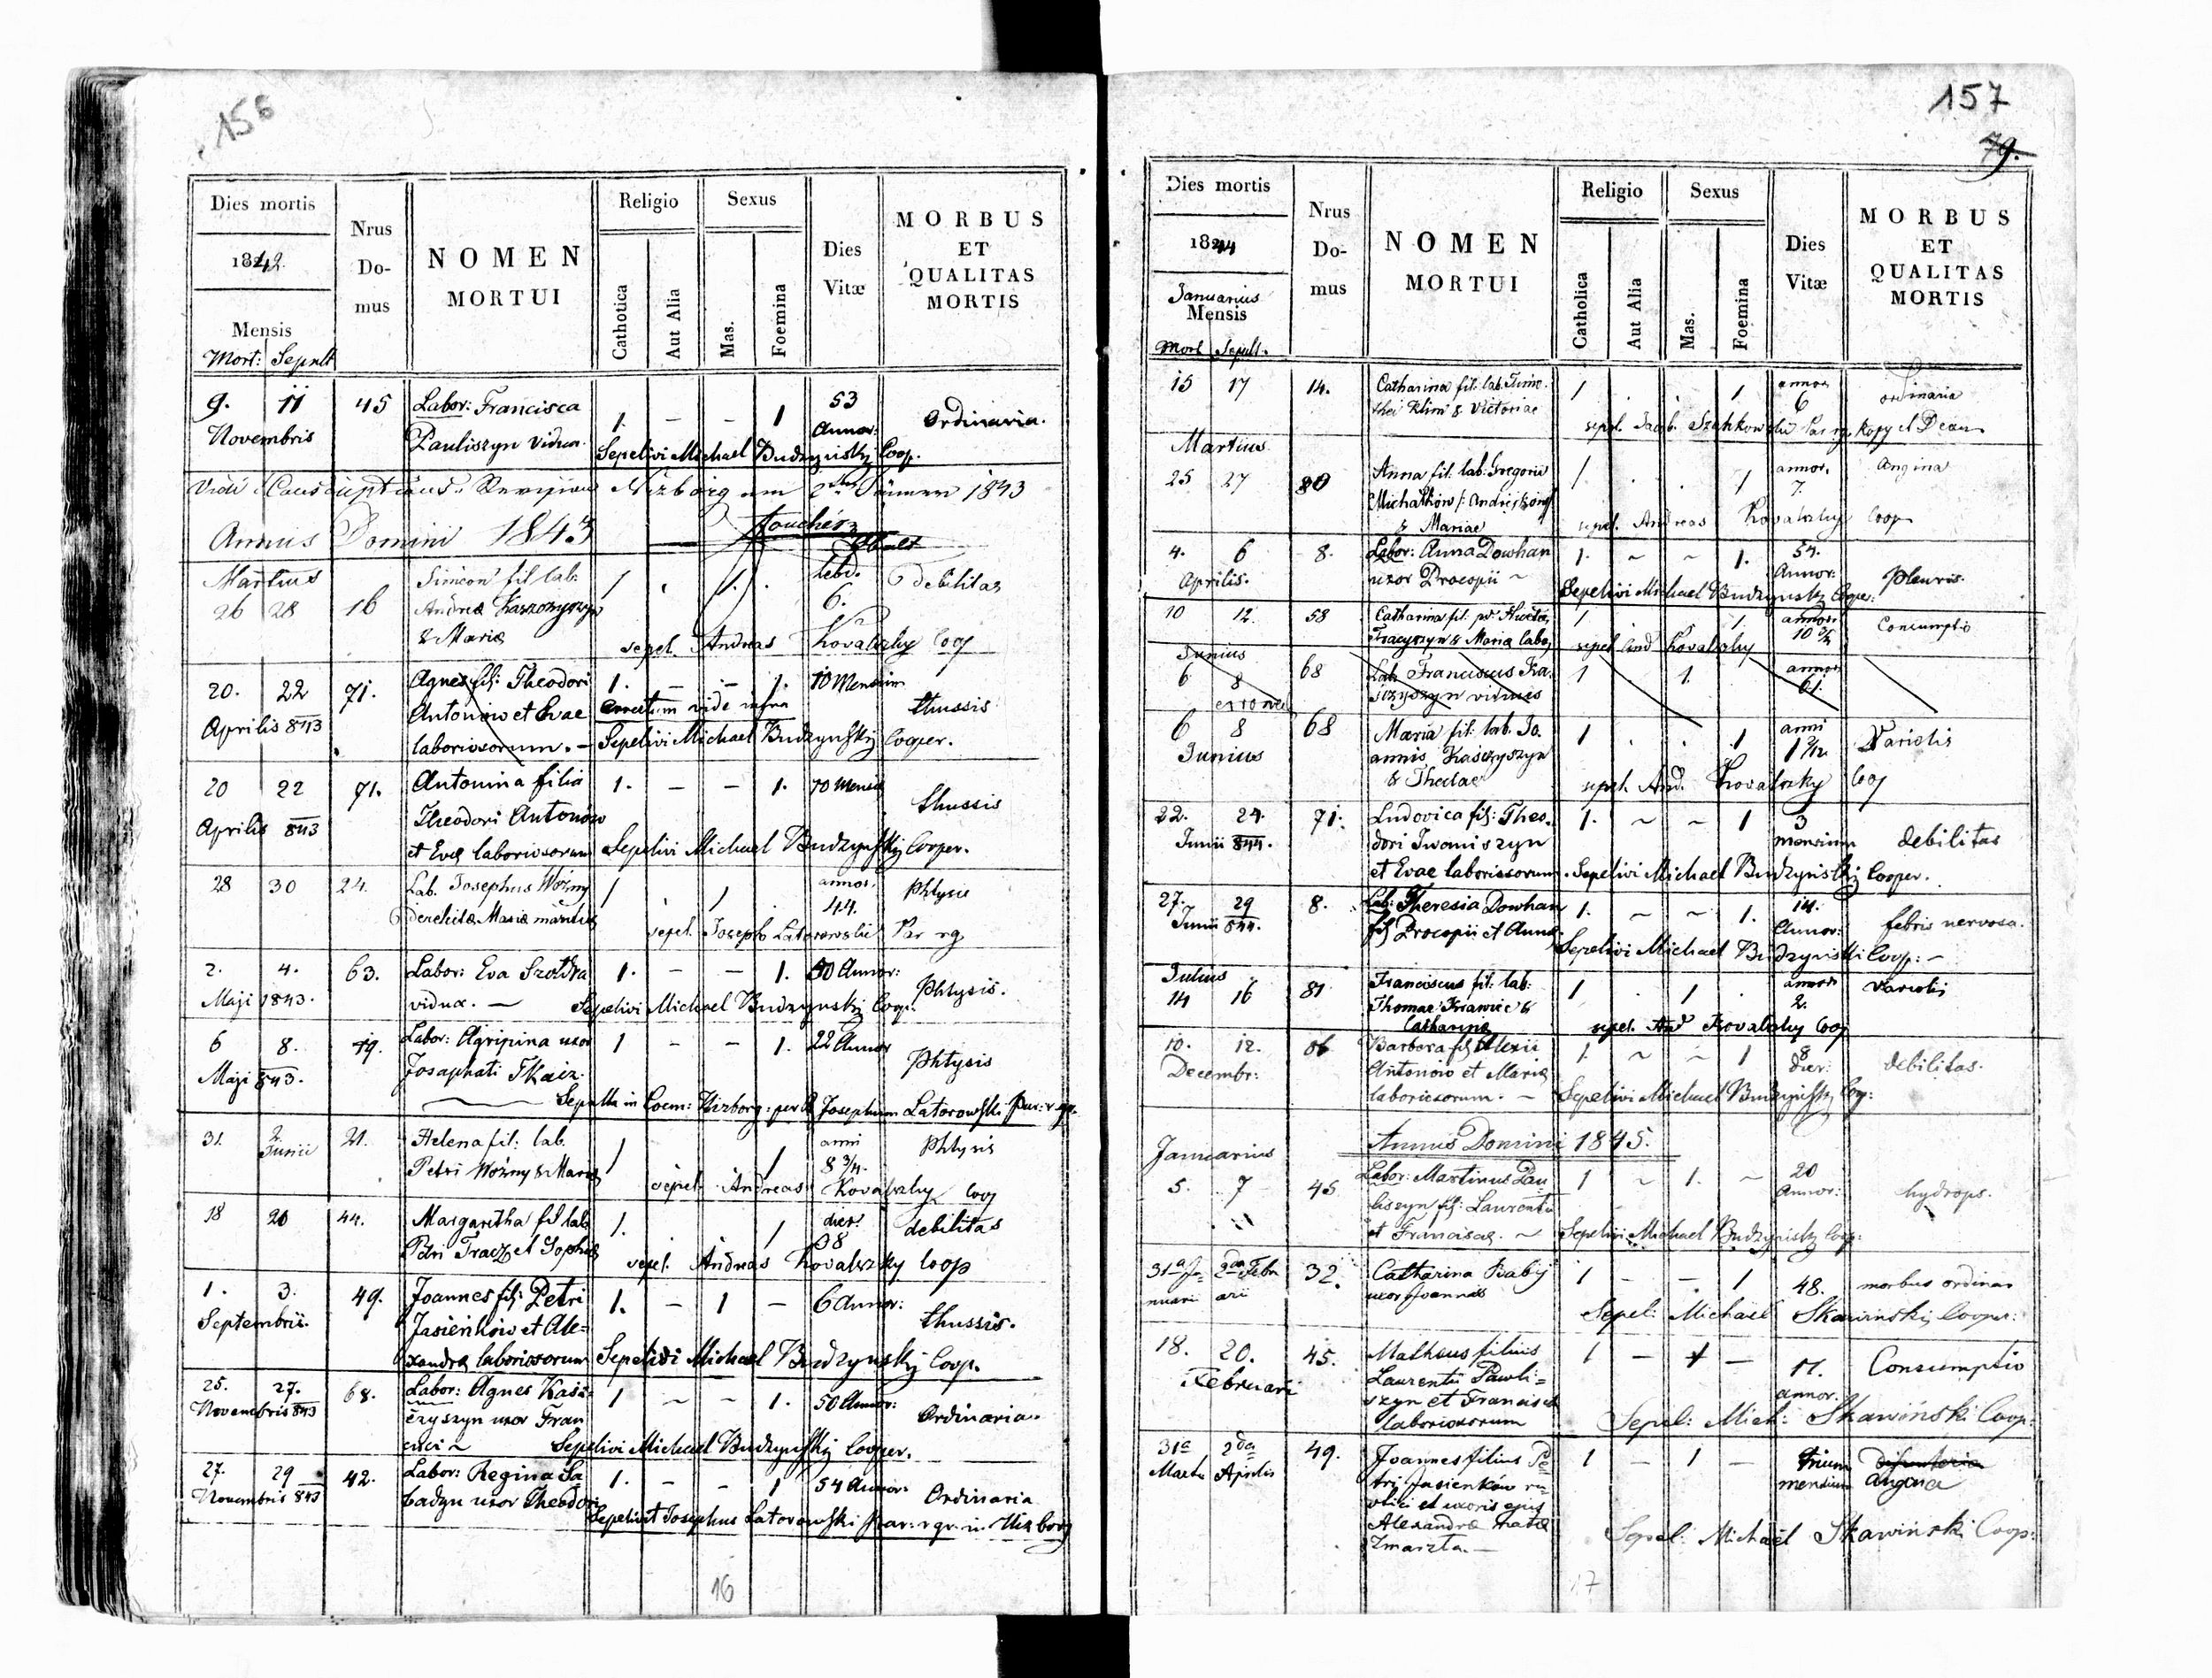 156
Dies mortis
1842.
Mensis
Mort: Sepult
Nrus Do- mus
NOMEN MORTUI
Religio
Catholica
Aut Alia
Sexus
Mas.
Foemina
Dies Vitæ
MORBUS ET QUALITAS MORTIS
9. 11 45 Labor: Francisca 1. – – 1 53 Ordinaria.
Novembris Pauliszyn vidua. Annor:
Sepelivi Michael Budzynskij Coop.
Vidi Nizborg am 2ten Jänner 1843
Annus Domini 1843
Martius Simeon fil lab. 1 . 1. . hebd. Debilitas
26 28 16 Andreæ 6.
& Mariæ
sepel. Andreas Kovalszky Coop
20. 22 71. Agnes filj: Theodori 1. – – 1. 10 Mensium
Antoniow et Evae correctum vide infra thussis
Aprilis 843 laboriosorum. – Sepelivi Michael Budzynskij Cooper.
20 22 71. Antonina filia 1. – – 1. 10 Mensiu
Aprilis 843 Theodori Antonów thussis
et Evæ laboriosorum Sepelivi Michael Budzynskij Cooper.
28 30 24. Lab. Josephus Woźny 1 1 annor. Phtysis
derelictæ Mariæ maritus 44.
sepel. Joseph Latorowski Par rg
2. 4. 63. Labor: Eva Szot 1. – – 1. 50 Annor: Phtysis.
Maji 1843. vidua. – Sepelivi Michael Budzynskij Coop.
6 8. 19. Labor: Agripina uxor 1 – – 1. 22 Annor Phtysis
Maji 843. Josaphati Tkacz.
Sepulta in Coem: Nizborg: per R Josephum Latorowski Par: r gr.
31. 2. Junii 21. Helena fil: lab. 1 1 anni Phtysis
Petri Woźny & Mariæ 8 3/4.
sepel. Andreas Kovalszky Coop
18 20 44. Margaretha fil lab: 1. . 1 dier: debilitas
Petri Tracz et Sophiæ 38
sepel. Andreas Kovalszky Coop
1. 3. 49. Joannes filj: Petri 1. – 1 – 6 Annor: thussis.
Septembris. Jasieńków et Ale=
xandræ laboriosorum Sepelivi Michael Budzynskij Coop.
25. 27. 68. Labor: Agnes Kaśz= 1 ~ ~ 1. 50 Annor: Ordinaria.
Novembris 843 czyszyn uxor Fran
cisci ~ Sepelivi Michael Budzynskij Cooper.
27. 29 42. Labor: Regina Sa 1. – – 1 54 Annor: Ordinaria
Novembris 843 badzyn uxor Theodori
Sepelivit Josephus Latorowski Par: r gr: in Nizborg
16
157
79.
Dies mortis
1844
Januarius
Mensis
Mort Sepult.
Nrus Do- mus
NOMEN MORTUI
Religio
Catholica
Aut Alia
Sexus
Mas.
Foemina
Dies Vitæ
MORBUS ET QUALITAS MORTIS
15 17 14. Catharina fil: lab. Timo- 1 . . 1 annor ordinaria
thei Klim & Victoriae 6
sepel. Jacob. Par rg Kopy et Decan
Martius
25 27 80 Anna fil. lab: Gregorii 1 . . 1 annor. Angina
Michałków /: Andrejków 7.
& Mariae sepel. Andreas Kovalszky Coop
4. 6 8. Labor: Anna Dowhan 1. ~ ~ 1. 54. Pleuris.
Aprilis. uxor Procopii ~ Annor:
Sepelivi Michael Budzynskij Cooper:
10 12. 58 Catharina fil. 1 1. annor Consumptio
Traczyszyn & Maria Labo
sepel And Kovalszky
Junius
6 8 68 Lab Franciscus Ka- 1 1. annor
erronee szczyszyn viduus 61.
6 8 68 Maria fil: lab. Jo- 1 . . 1 anni Variolis
Junius annis Kaśczyszyn 1
& Theclae sepel. And. Kovalszky Coop
22. 24. 71. Ludovica filj: Theo- 1. ~ ~ 1 3 debilitas
Junii 844. dori Iwaniszyn mensium
et Evae laboriosorum. Sepelivi Michael Budzynskij Cooper.
27. 29 8. Lab: Theresia Dowhan 1. ~ ~ 1. 14. febris nervosa.
Junii 844. filj Procopii et Annæ Annor:
Sepelivi Michael Budzynskij Coop: –
Julius Franciscus fil: lab: annor
14 16 81 Thomae Krawiec & 1 . 1 . 2. Variolis
Catharinæ sepel. And Kovalszky Coop
10. 12. 86 Barbara filj Alexii 1. ~ ~ 1 8 debilitas.
Decembr: Antoniow et Mariæ dier:
laboriosorum. – Sepelivi Michael Budzynskij Coop:
Annus Domini 1845.
Januarius
5. 7 45 Labor: Martinus Pau 1 ~ 1. ~ 20 hydrops.
liszyn filj: Laurentii Annor:
et Franciscæ. ~ Sepelivi Michael Budzynskij Coop:
31a Ja- 2da Febr 32. Catharina Babij 1 – – 1 48. morbus ordinar
nuarii arii uxor Joannis
Sepel: Michael Skawinskij Cooper:
18. 20. 45. Matheus filius 1 – 1 – 17. Consumptio
Februari Laurentii Pawli= annor.
szyn et Franciscæ
laboriosorum Sepel: Mich: Skawiński Coop:
31a 2da 49. Joannes filius Pe- 1 – 1 – trium
Martii Aprilis trij Jasienków ru- mensium Angina
stici et uxoris ejus
Alexandræ natæ
Zmarzta. – Sepel: Michaël Skawiński Coop:
17